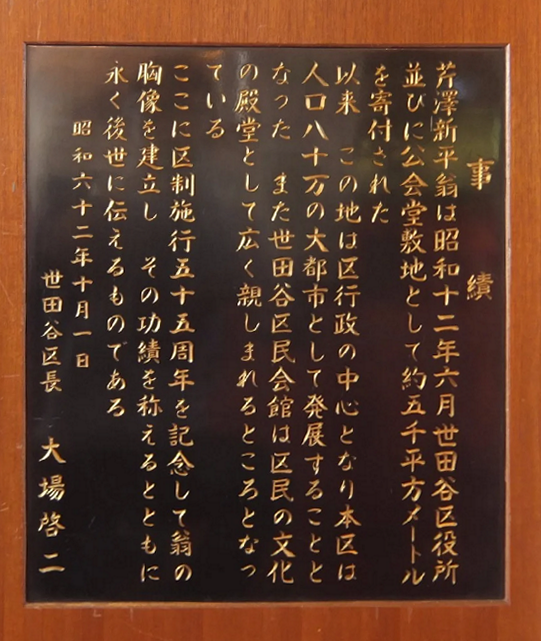 事績
芹澤新平翁は昭和十二年六月世田谷区役所
並びに公会堂敷地として約五千平方メートル
を寄付された
以来　この地は区行政の中心となり本区は
人口八十万の大都市として発展することと
なった　また世田谷区民会館は区民の文化
の殿堂として広く親しまれるところとなっ
ている
ここに区制施行五十五周年を記念して翁の
胸像を建立し　その功績を称えるとともに
永く後世に伝えるものである
昭和六十二年十月一日
世田谷区長　大場啓二